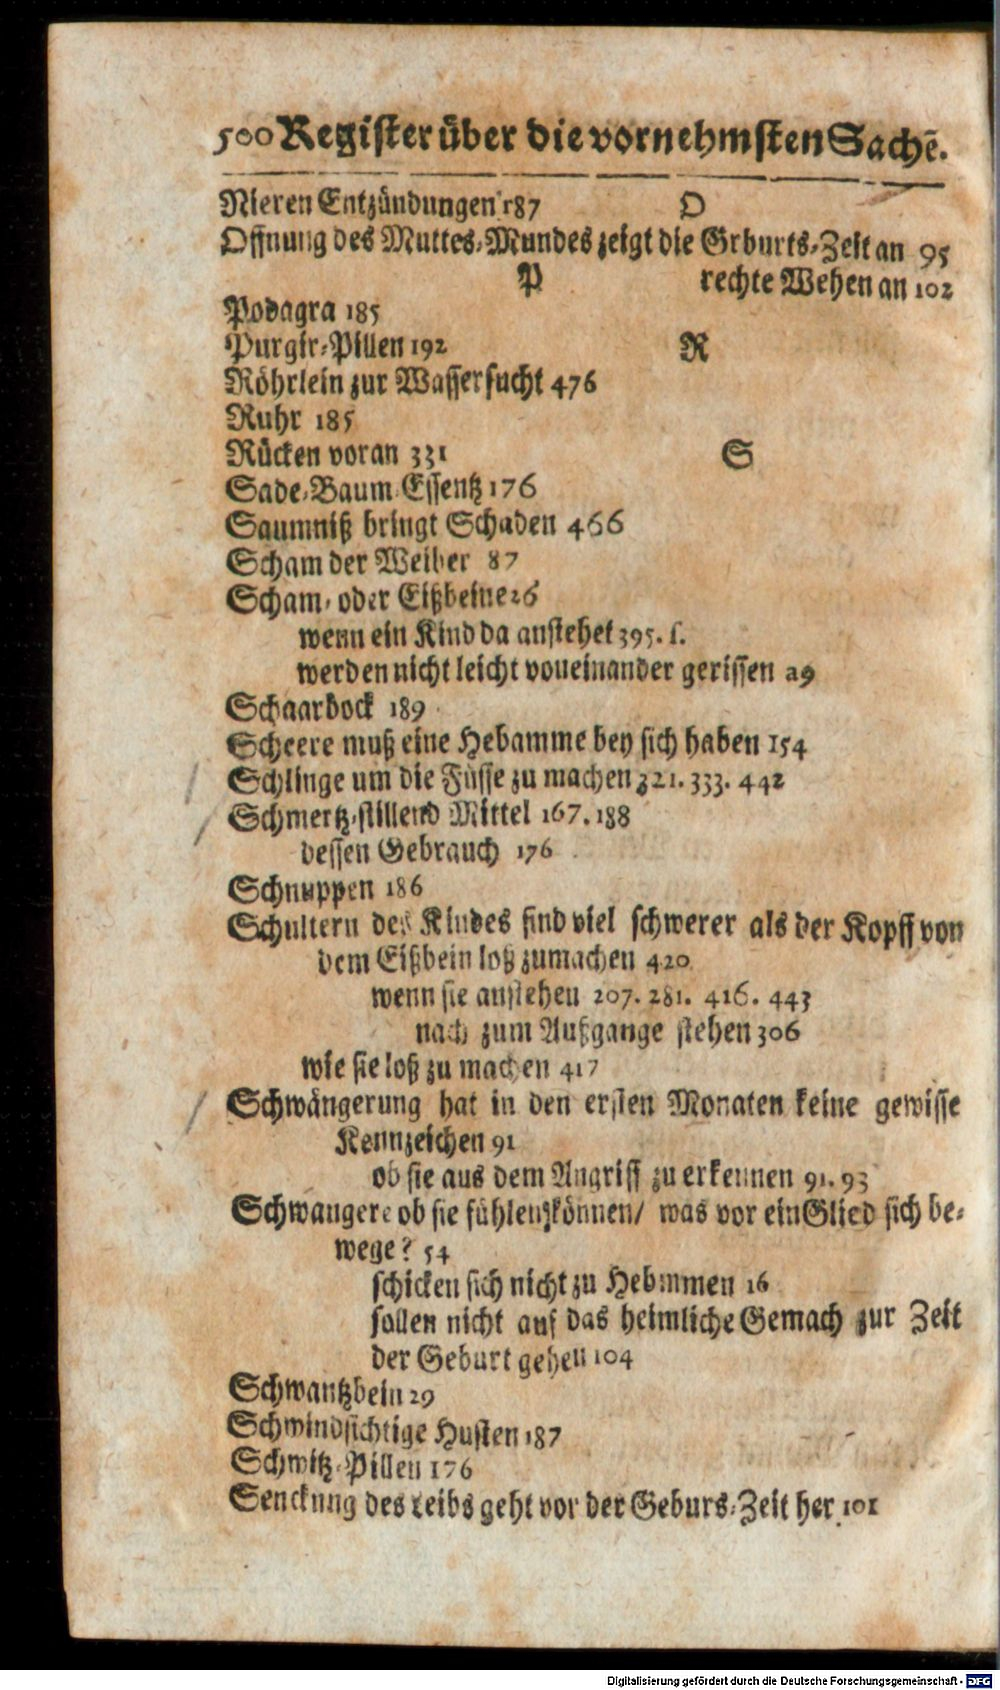 500 Register über die vornehmsten Sachē.
Nieren Entzündungen 187 O
Offnung des Muttes-Mundes zeigt die Grburts-Zeit an 95
P rechte Wehen an 102
Podagra 185
Purgir-Pillen 192 R
Röhrlein zur Wassersucht 476
Ruhr 185
Rücken voran 331 S
Sade-Baum Essentz 176
Saumniß bringt Schaden 466
Scham der Weiber 87
Scham- oder Eißbeine 26
wenn ein Kind da anstehet 395. f.
werden nicht leicht voneinander gerissen 29
Schaarbock 189
Scheere muß eine Hebamme bey sich haben 154
Schlinge um die Füsse zu machen 321. 333. 442
Schmertz-stillend Mittel 167. 188
dessen Gebrauch 176
Schnuppen 186
Schultern des Kindes sind viel schwerer als der Kopff von
dem Eißbein loß zumachen 420
wenn sie anstehen 207. 281. 416. 443
nach zum Außgange stehen 306
wie sie loß zu machen 417
Schwängerung hat in den ersten Monaten keine gewisse
Kennzeichen 91
ob sie aus dem Angriff zu erkennen 91. 93
Schwangere ob sie fühlen können/ was vor ein Glied sich be-
wege? 54
schicken sich nicht zu Hebmmen 16
sollen nicht auf das heimliche Gemach zur Zeit
der Geburt gehen 104
Schwantzbein 29
Schwindsichtige Husten 187
Schwitz-Pillen 176
Senckung des Leibs geht vor der Geburs-Zeit her 101
Digitalisierung gefördert durch die Deutsche Forschungsgemeinschaft - DFG